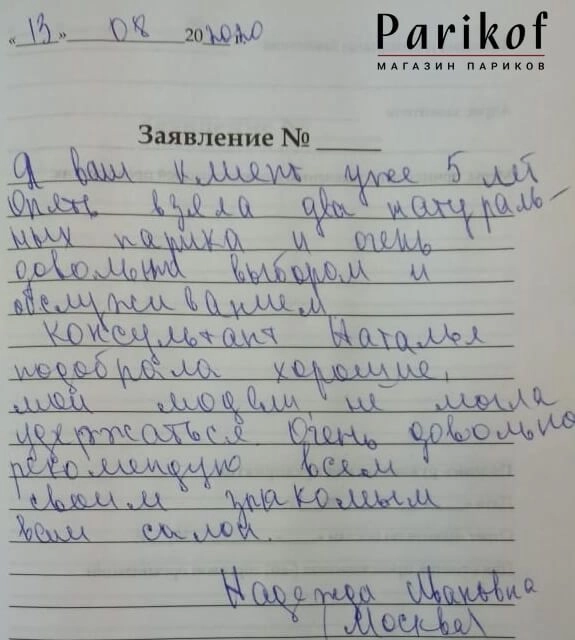 Parikof
МАГАЗИН ПАРИКОВ
«13» 08 202020
Заявление №
Я ваш клиент уже 5 лет
Опять взяла два натураль-
ных парика и очень
довольна выбором и
обслуживанием
Консультант Наталья
подобрала хорошие,
мои модели не могла
удержаться. Очень довольна
рекомендую всем
своим знакомым
ваш салон.
Надежда Ивановна
(Москва)